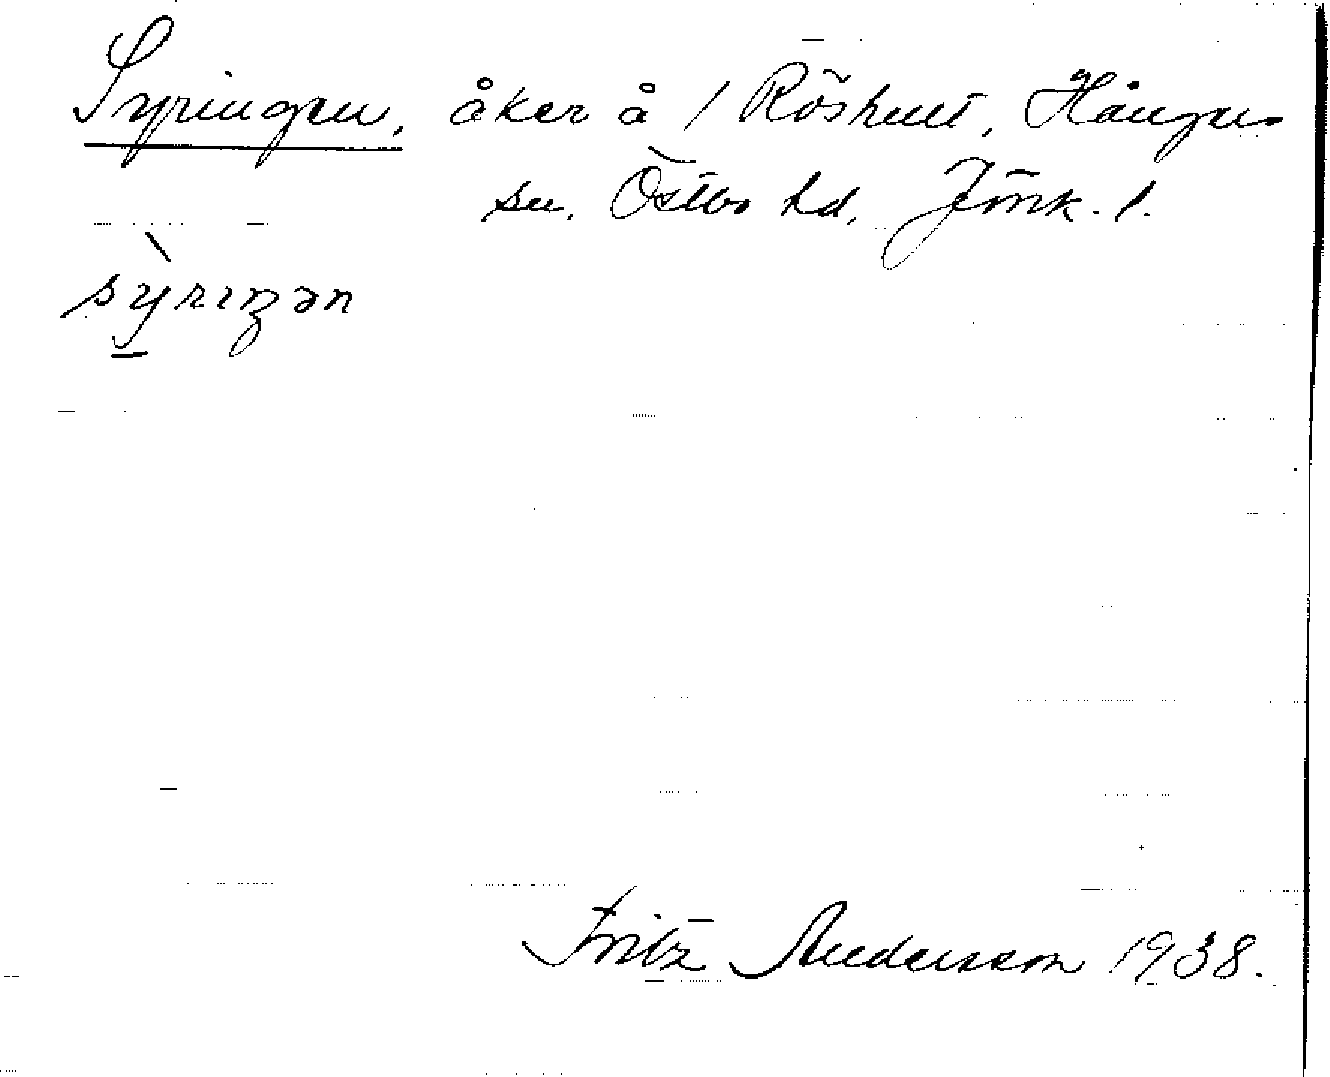 Syringen, åker å / Röshult, Hånger
sn, Östbo hd, Jönk. l.
sỳ̠rıŋən
Fritz Andersson 1938.